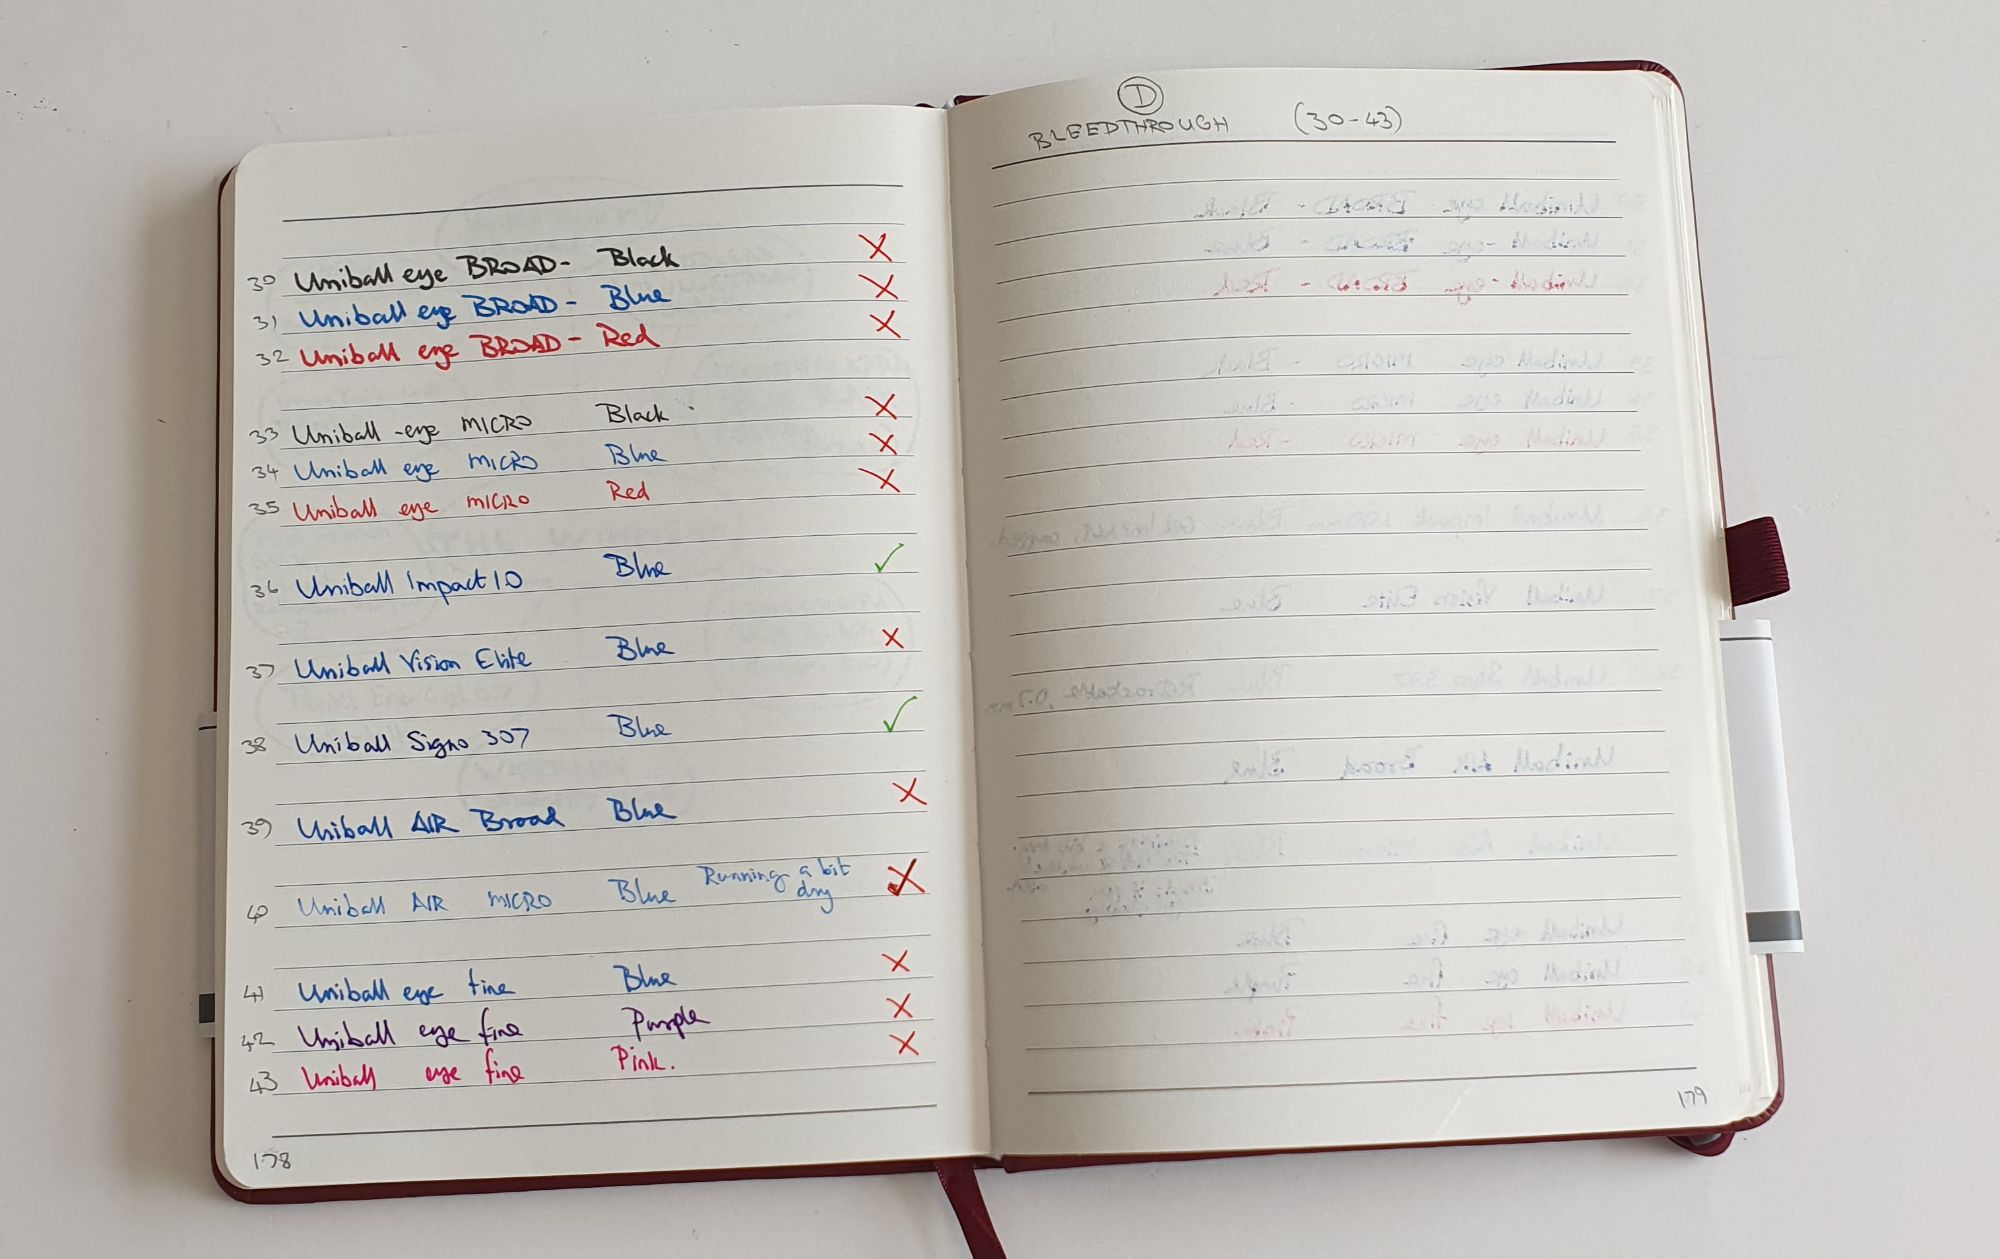 30 Uniball eye BROAD- Black X
31 Uniball eye BROAD - Blue X
32 Uniball eye BROAD - Red X
33 Uniball -eye MICRO Black X
34 Uniball eye MICRO Blue X
35 Uniball eye MICRO Red X
36 Uniball Impact 1.0 Blue ✓
37 Uniball Vision Elite Blue X
38 Uniball Signo 307 Blue ✓
39 Uniball AIR Broad Blue X
40 Uniball AIR MICRO Blue Running a bit dry X
41 Uniball eye fine Blue X
42 Uniball eye fine Purple X
43 Uniball eye fine Pink. X
178
D
BLEEDTHROUGH (30-43)
179